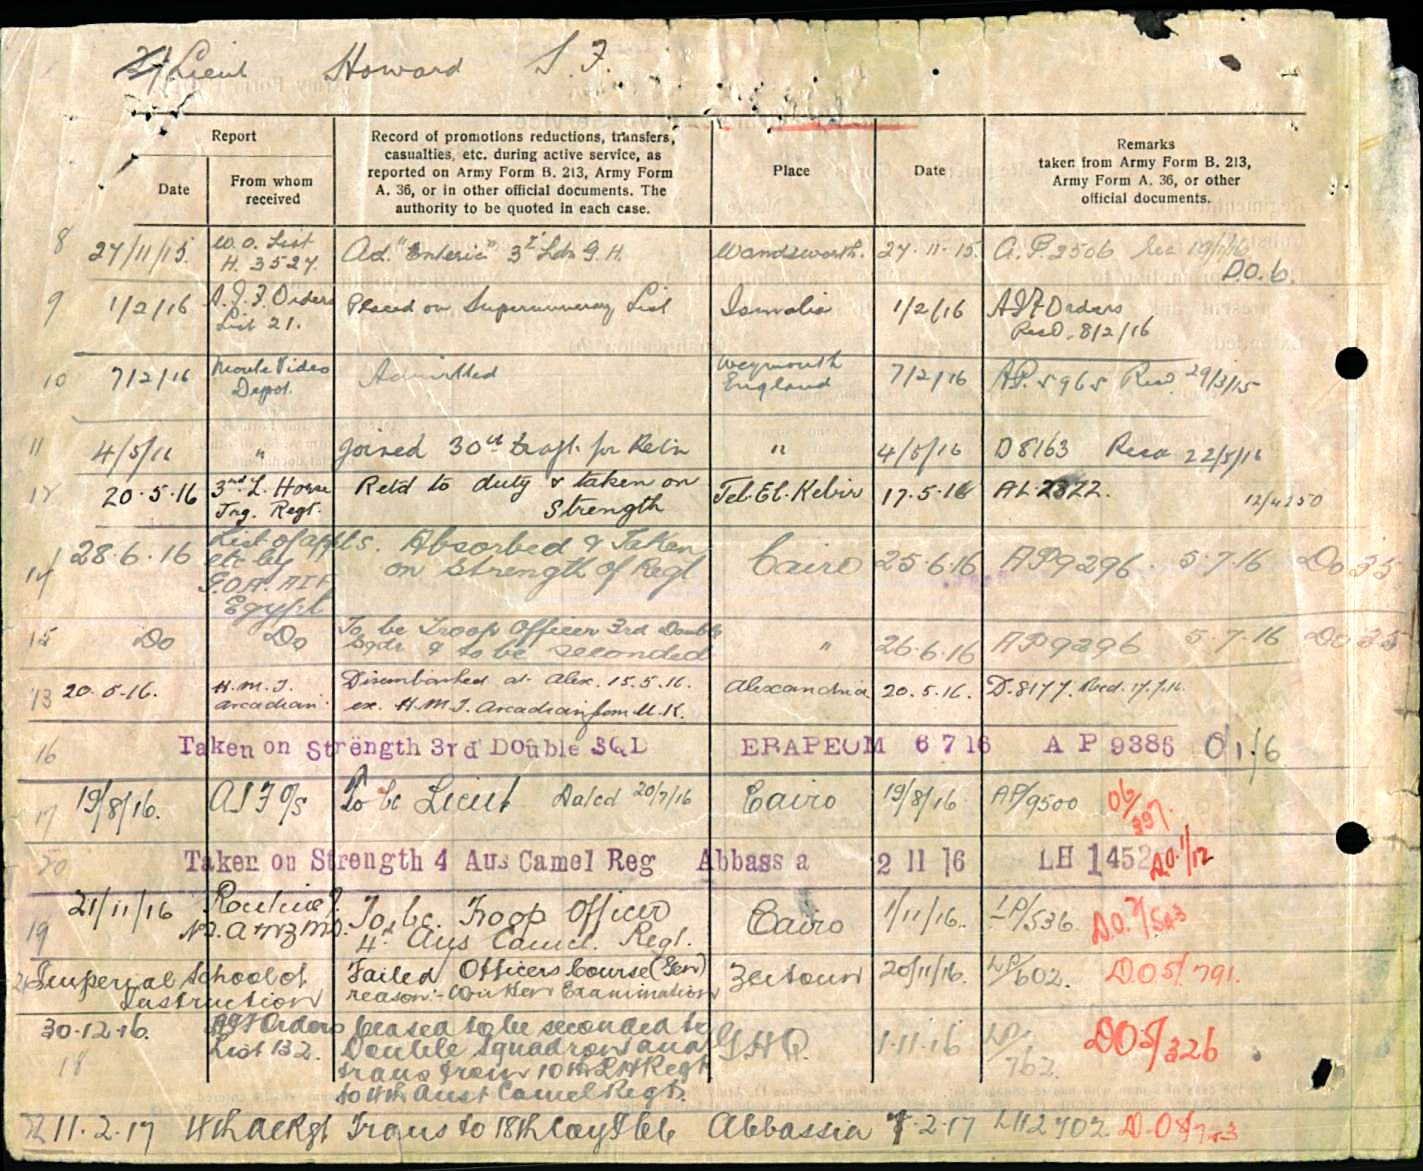 2/Lieut Howard S. F.
Report
Date
From whom
received
Record of promotions reductions, transfers,
casualties, etc. during active service, as
reported on Army Form B. 213, Army Form
A. 36, or in other official documents. The
authority to be quoted in each case.
Place
Date
Remarks
taken from Army Form B. 213,
Army Form A. 36, or other
official documents.
8 27/11/15. W.O. List Ad. "Enteric" 3rd Ldn G.H. Wandsworth. 27-11-15. A.F. 2506
H. 3527. D.O. 6.
9 1/2/16 A.I.F. Orders Placed on Supernumerary List Ismalia 1/2/16 AIF Orders
List 21. Recd. 8/2/16
10 7/2/16 Monte Video Admitted Weymouth 7/2/16 A.P. 5965 Recd 29/3/15
Depot. England
11 4/5/16 " Joined 30th Draft. for Retn " 4/5/16 D8163 22/5/16
12 20.5.16 3rd L. Horse Retd to duty & taken on Tel-El-Kebir 17.5.16 AL 2322.
Trg. Regt. Strength 12/4250
14 28.6.16 List of appts. Absorbed & Taken Cairo 25.6.16 AP9296 5.7.16 Do 35
etc by on Strength of Regt
G.O.A. AIF
Egypt
15 Do Do To be Troop Officer 3rd Double " 26.6.16 AP9296 5.7.16 Do 35
Sqdr & to be seconded
13 20.5.16. H.M.T. Disembarked at Alex. 15.5.16. Alexandria 20.5.16. D.8177. Recd. 17.7.16
Arcadian. ex. H.M.T. Arcadian from U.K.
16 Taken on Strength 3rd Double SQD ERAPEUM 6 7 16 A P 9386 O/1/6
17 19/8/16. AIF O/S To be Lieut Dated 20/7/16 Cairo 19/8/16 AP/9500 D6/397.
20 Taken on Strength 4 Aus Camel Reg Abbassa 2 11 16 LH 1452 D.O.1/12
19 21/11/16 To be. Troop Officer Cairo 1/11/16. LP/536. D.O.
4th Aus Camel. Regt.
21 Imperial School of Failed Officers Course (Gen) Zeitoun 20/11/16. LP/602. DO5/791.
Instruction reason:- Written Examination
18 30-12-16. AIF Orders Ceased to be seconded to GHQ. 1-11-16 LP/762. DO5/326
List 132. Double Squadron and
trans from 10th LH Regt
to 4th Aust Camel Regt.
22 11.2.17 4th ACRgt Trans to 18th Coy Abbassia 7.2.17 LH2702.